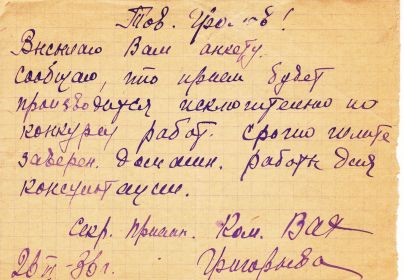 Тов. Громов!
Высылаю Вам анкету.
сообщаю, что прием будет
производится исключительно по
конкурсу работ. срочно шлите
заверен. домашн. работы для
консультации.
Секр. приемн. Ком. ВАХ
Григорьева
36 г.